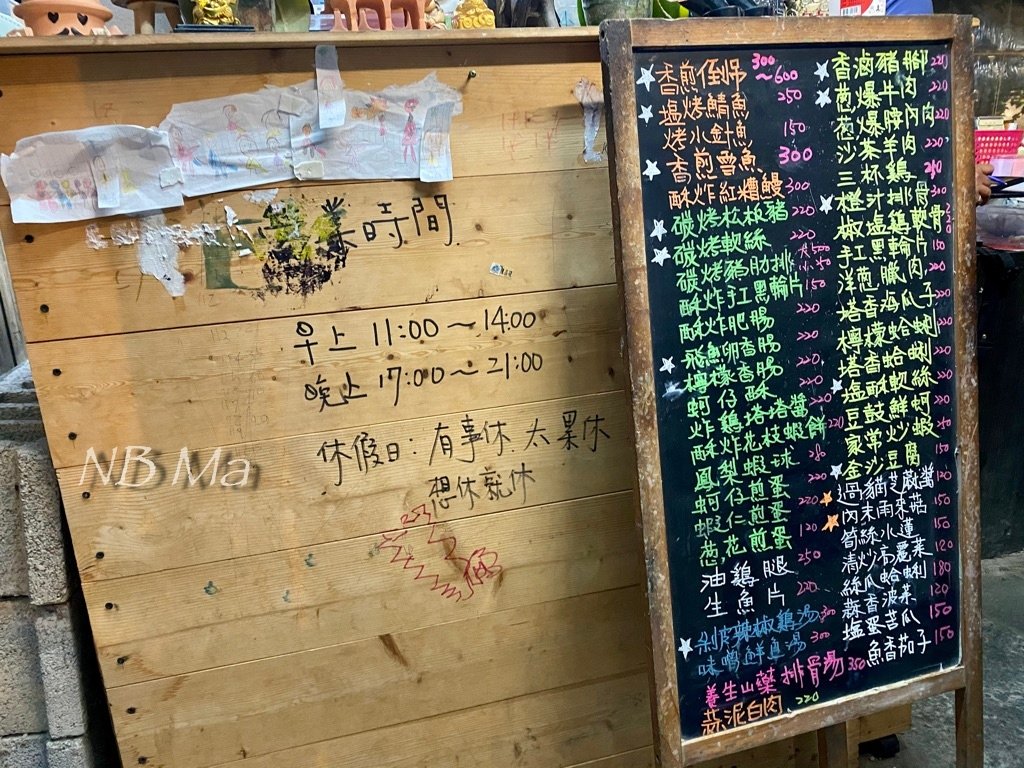 營業時間
早上 11:00～14:00
晚上 17:00～21:00
休假日：有事休 太累休
想休就休
NB Ma
香煎倒吊 300～600
塩烤鯖魚 250
烤小針魚 150
香煎雪魚 300
酥炸紅糟鰻 300
碳烤松板豬 220
碳烤軟絲 220
碳烤豬肋排 大500 小250
酥炸手工黑輪片 150
酥炸肥腸 220
飛魚卵香腸 220
檸檬香腸 220
蚵仔酥 220
炸雞塔塔醬 220
酥炸花枝蝦餅 220
鳳梨蝦球 250
蚵仔煎蛋 220
蝦仁煎蛋 220
葱花煎蛋 120
油鷄腿 250
生魚片 220
剝皮辣椒鷄湯 300
味噌鮮魚湯 300
養生山藥排骨湯 350
蒜泥白肉 220
香滷豬腳 220
葱爆牛肉 220
葱爆腰內肉 220
沙茶羊肉 220
三杯鷄 250
橙汁排骨 300
椒塩鷄軟骨 220
手工黑輪片 150
洋葱鹹肉 220
塔香海瓜子 220
檸檬蛤蜊 220
塔香蛤蜊 220
塩酥軟絲 220
豆鼓鮮蚵 220
家常炒蝦 250
金沙豆腐
過貓芝麻醬 120
肉末雨來菇 150
筍絲水蓮 150
清炒高麗菜 120
絲瓜蛤蜊 180
蒜香菠菜 120
塩蛋苦瓜 150
魚香茄子 150